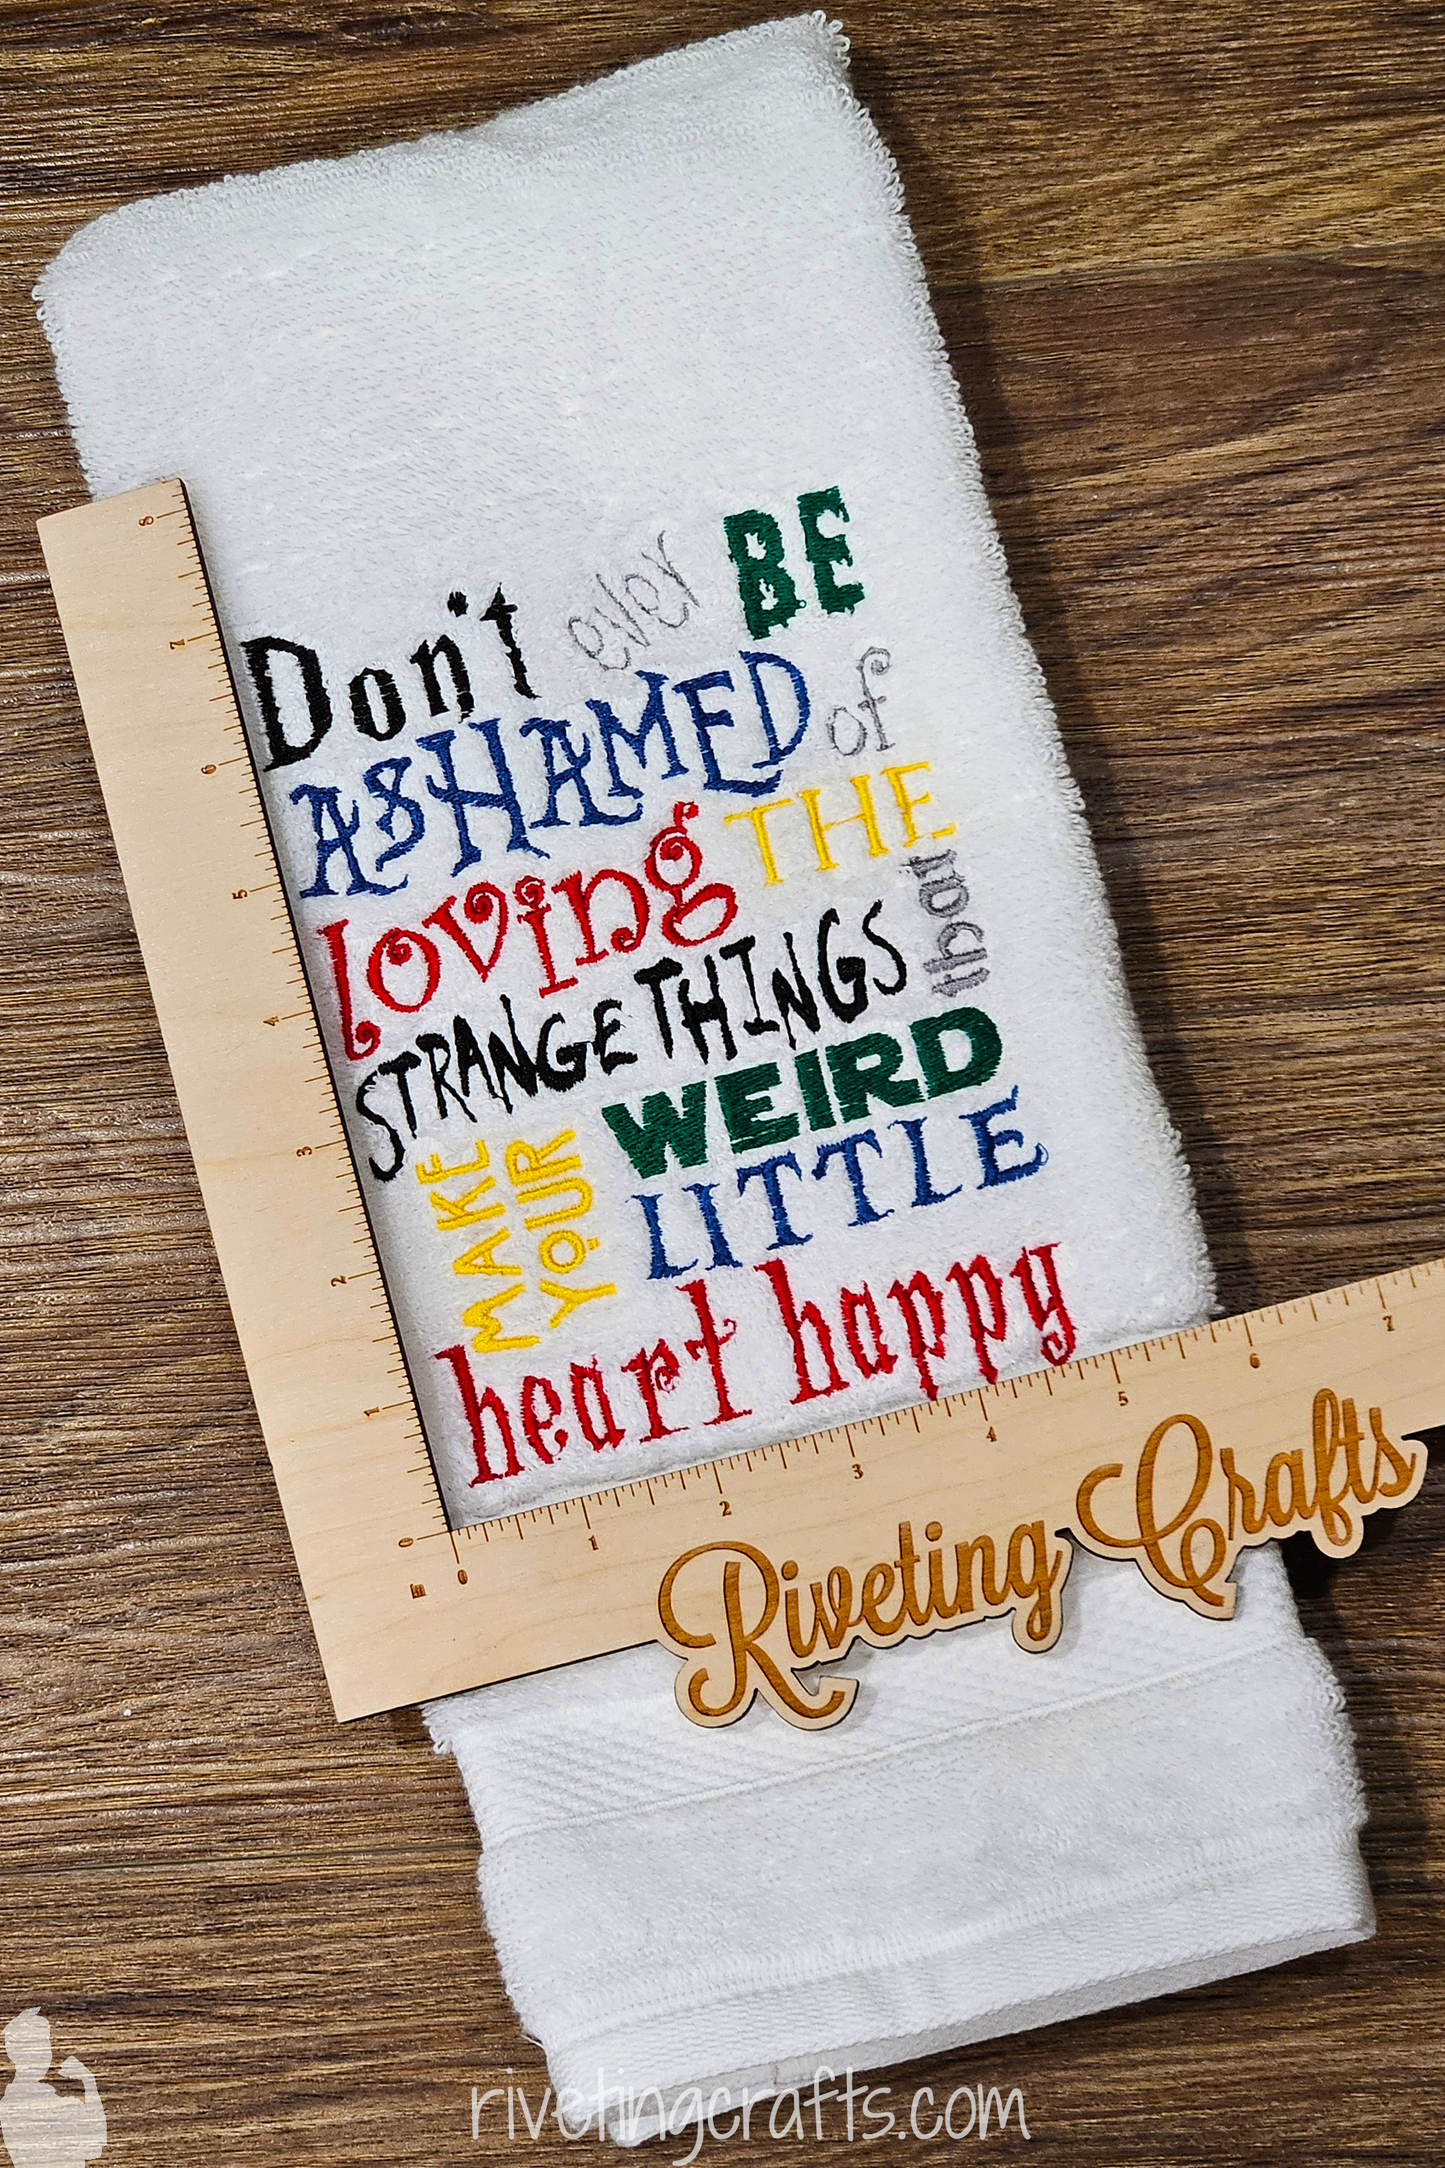 Don't ever BE
ASHAMED of
loving THE
STRANGE THINGS that
MAKE YOUR
WEIRD
LITTLE
heart happy
8
7
6
5
4
3
2
1
0
in 0 1 2 3 4 5 6 7
Riveting Crafts
rivetingcrafts.com